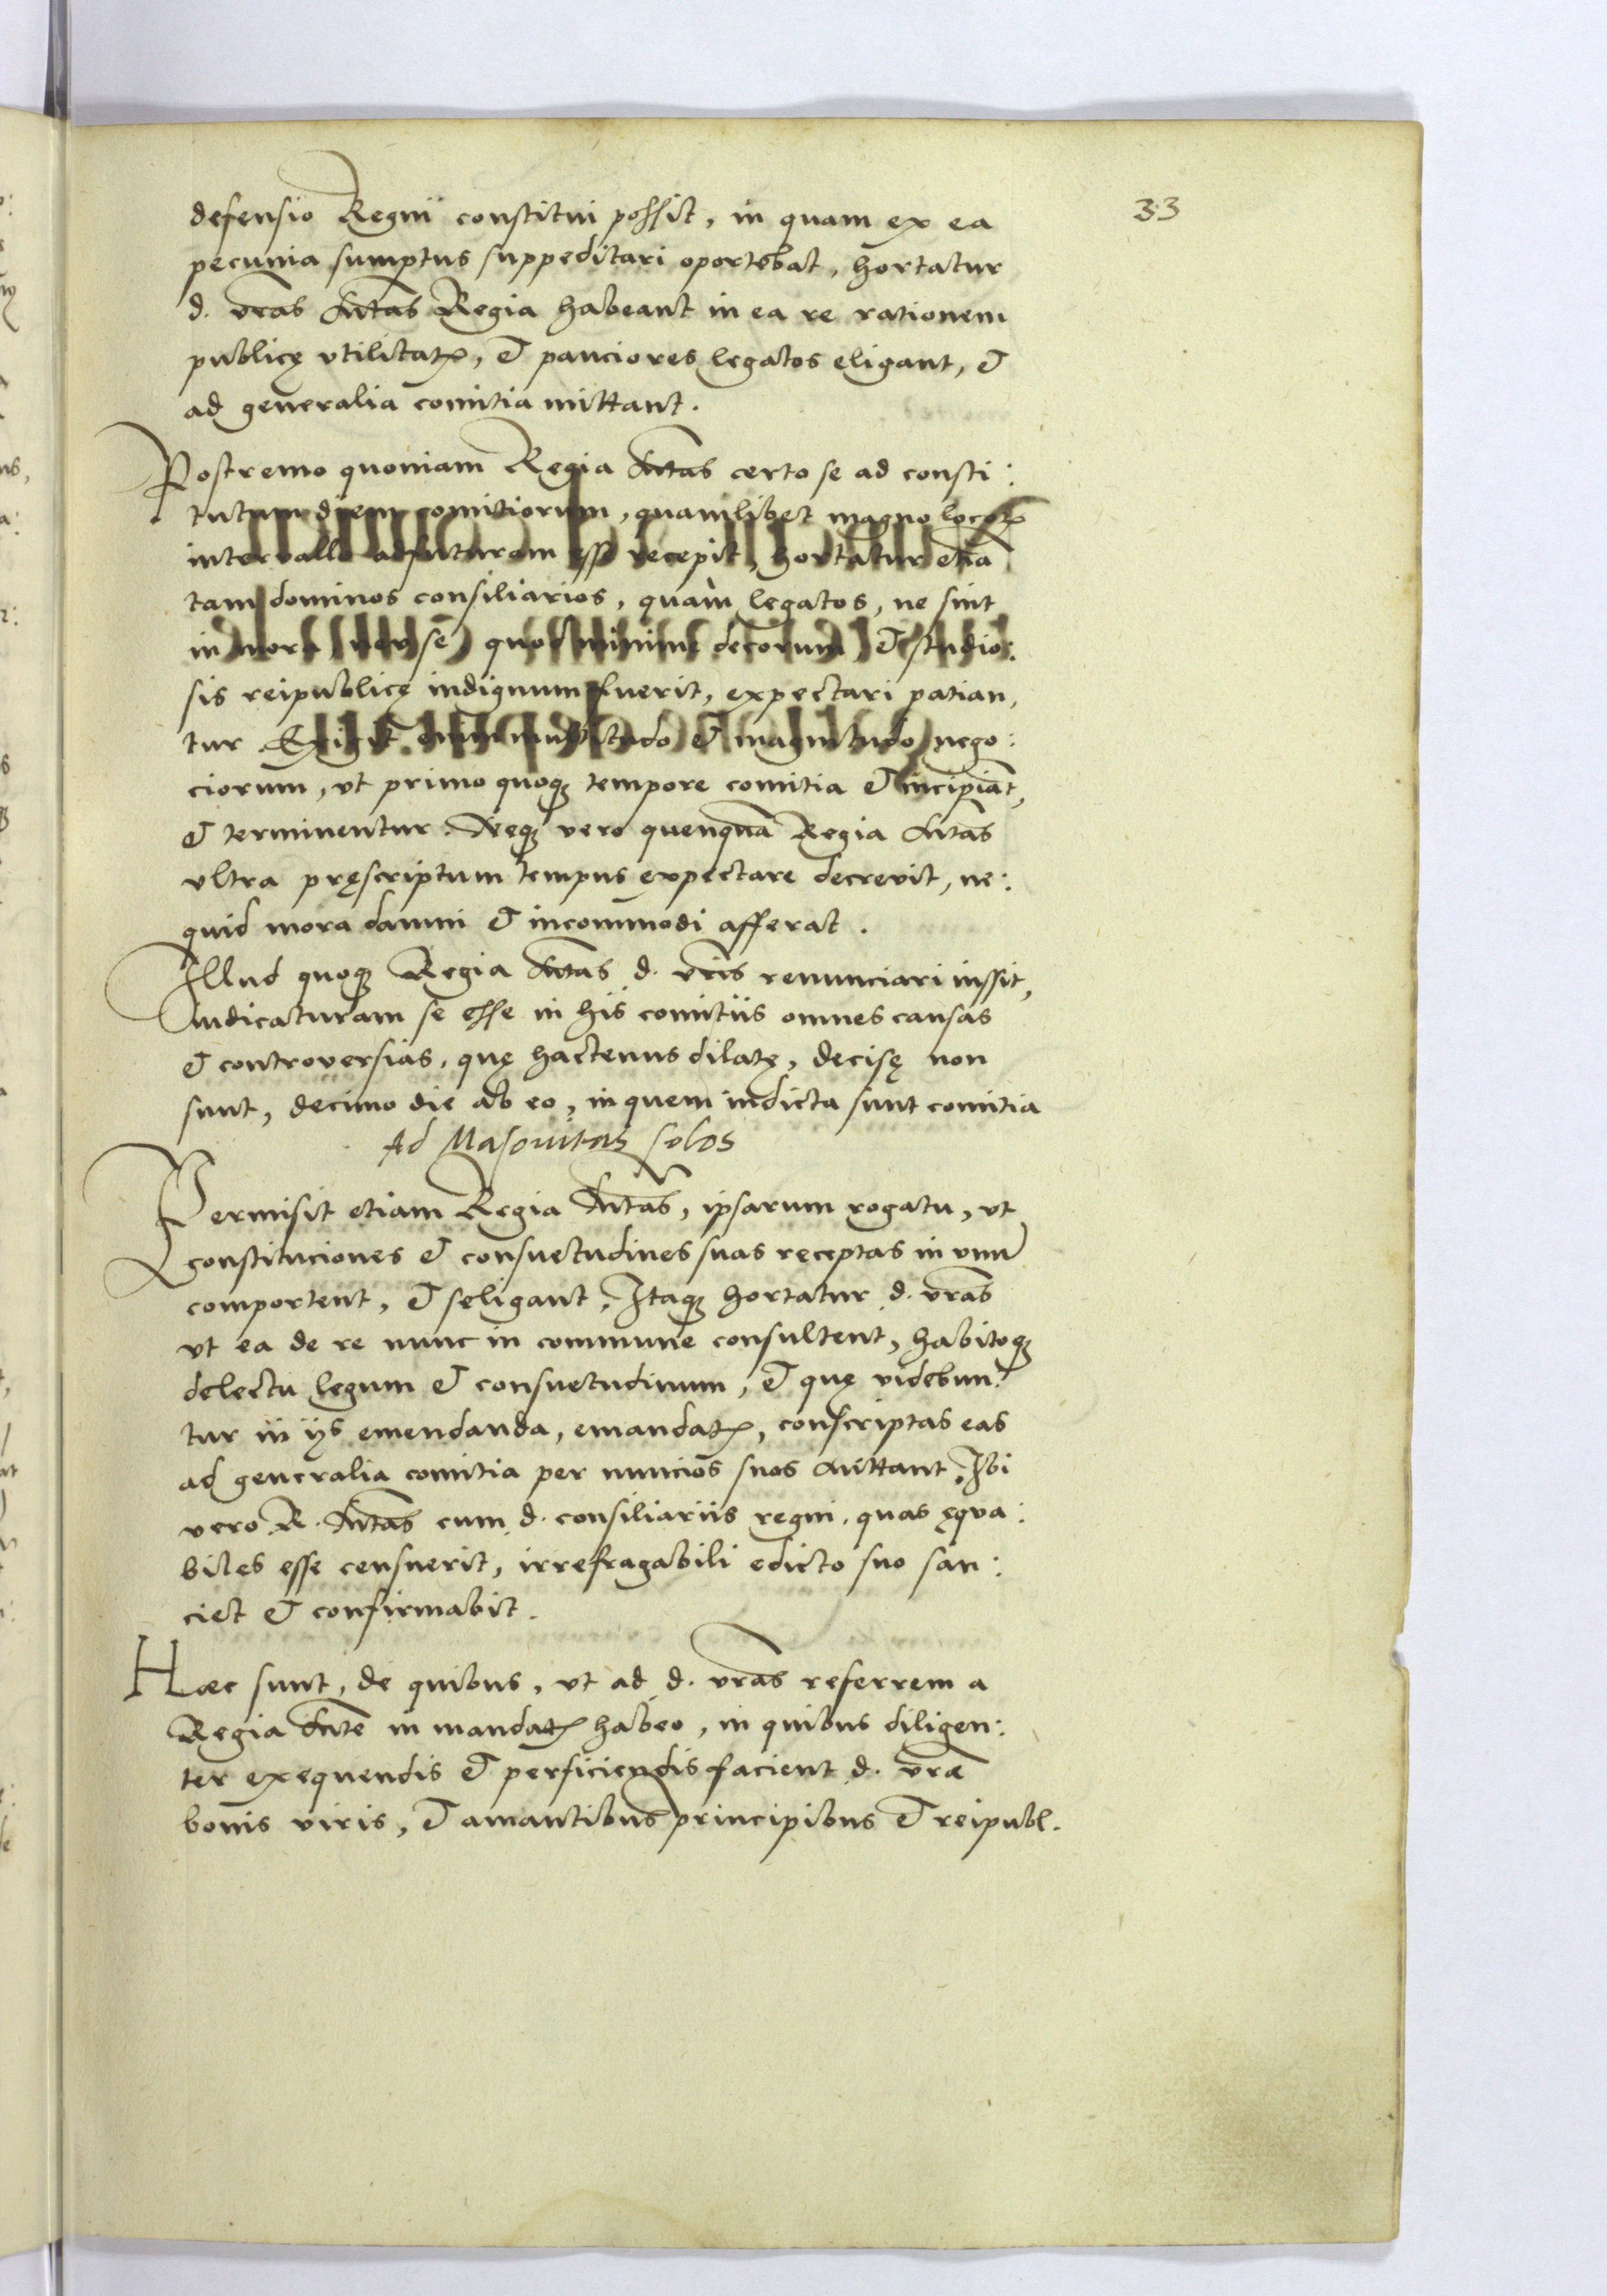 33
defensio Regni constitui possit, in quam ex ea
pecunia sumptus suppeditari oportebat, hortatur
d. vras Mtas Regia habeant in ea re rationem
publicę vtilitatꝭ, et pauciores legatos eligant, et
ad generalia comitia mittant.
Postremo quoniam Regia Mtas certo se ad consti:
tutum diem comitiorum, quamlibet magno locorꝝ
intervallo adfuturam esse recepit, hortatur etiã
tam dominos consiliarios, quàm legatos, ne sint
in mora neve se, quod minime decorum et studio:
sis reipublicę indignum fuerit, expectari patian,
tur Exigit enim multitudo et magnitudo nego:
ciorum, vt primo quoqꝫ tempore comitia et incipiãt,
et terminentur. Neqꝫ vero quenquã Regia Mtas
vltra pręscriptum tempus expectare decrevit, ne:
quid mora damni et incommodi afferat.
Illud quoqꝫ Regia Mtas d. vris renunciari iussit,
iudicaturam se esse in his comitiis omnes causas
et controversias, quę hactenus dilatę, decisę non
sunt, decimo die ab eo, in quem indicta sunt comitia
Ad Masouitas solos
Permisit etiam Regia Mtas, ipsarum rogatu, vt
constituciones et consuetudines suas receptas in vnũ
comportent, et seligant. Itaqꝫ hortatur d. vras
vt ea de re nunc in commune consultent, habitoqꝫ
delectu legum et consuetudinum, et quę videbun:
tur in ijs emendanda, emandatꝭ, conscriptas eas
ad generalia comitia per nuncios suos mittant. Ibi
vero R. Mtas cum d. consiliariis regni, quas ęqua:
biles esse censuerit, irrefragabili edicto suo san:
ciet et confirmabit.
Haec sunt, de quibus, vt ad d. vras referrem a
Regia Mte in mandatꝭ habeo, in quibus diligen:
ter exequendis et perficiendis facient d. vrae
bonis viris, et amantibus principibus et reipubl.